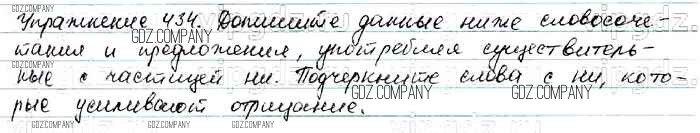 Упражнение 434. Допишите данные ниже словосоче-
тания и предложения, употребляя существитель-
ные с частицей ни. Подчеркните слова с ни, кото-
рые усиливают отрицание.
GDZ.COMPANY GDZ.COMPANY GDZ.COMPANY
GDZ.COMPANY GDZ.COMPANY
GDZ.COMPANY GDZ.COMPANY GDZ.COMPANY